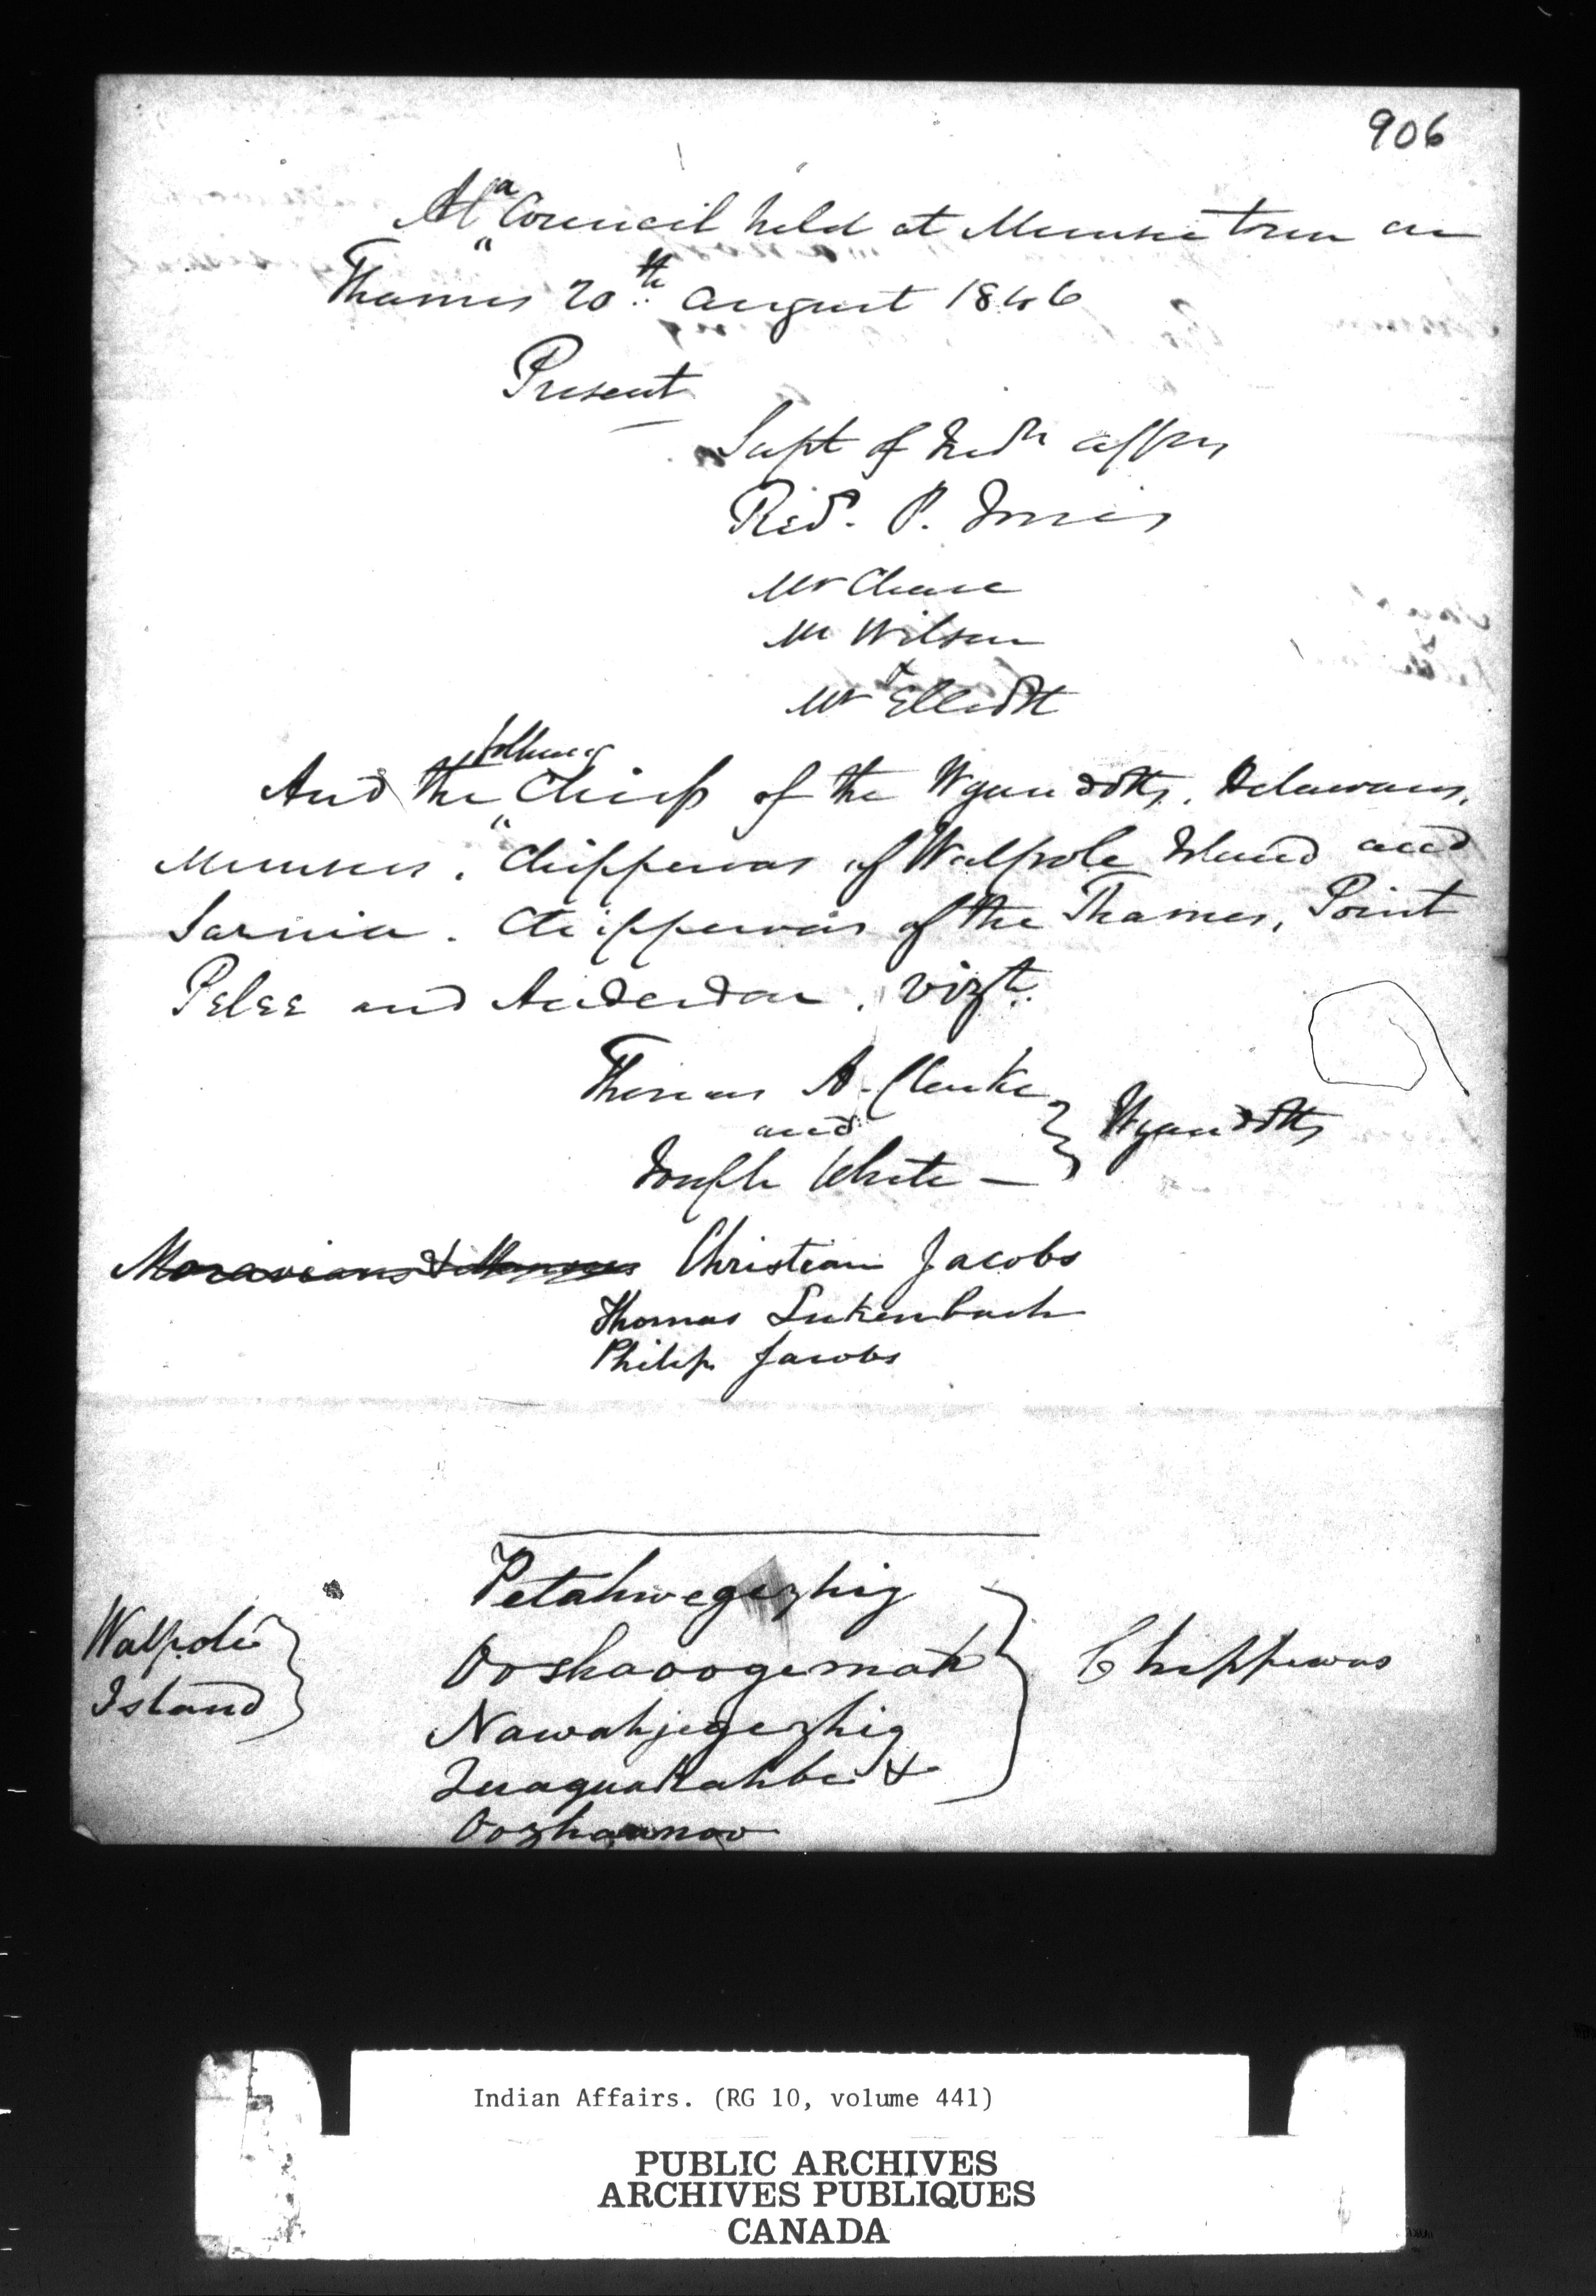 906
At a Council held at Munsee town on
Thames 20th August 1846
Present
Supt of Indn affrs
Revd. P. Jones
Mr Chase
Mr Wilson
Mr Elliott
And the following Chiefs of the Wyandotts, Delawares,
Munsees, Chippewas of Walpole Island and
Sarnia. Chippewas of the Thames, Point
Pelee and Anderdon, vizt.
Thomas A. Clarke
and
Joseph White —
Wyandotts
Moravians & Munsees Christian Jacobs
Thomas Lukenbach
Philip Jacobs
Petahwegezhig
Walpole
Island
Ooshaoogemah
Chippewas
Nawahjegezhig
&
Oozhaunoo
Indian Affairs. (RG 10, volume 441)
PUBLIC ARCHIVES
ARCHIVES PUBLIQUES
CANADA